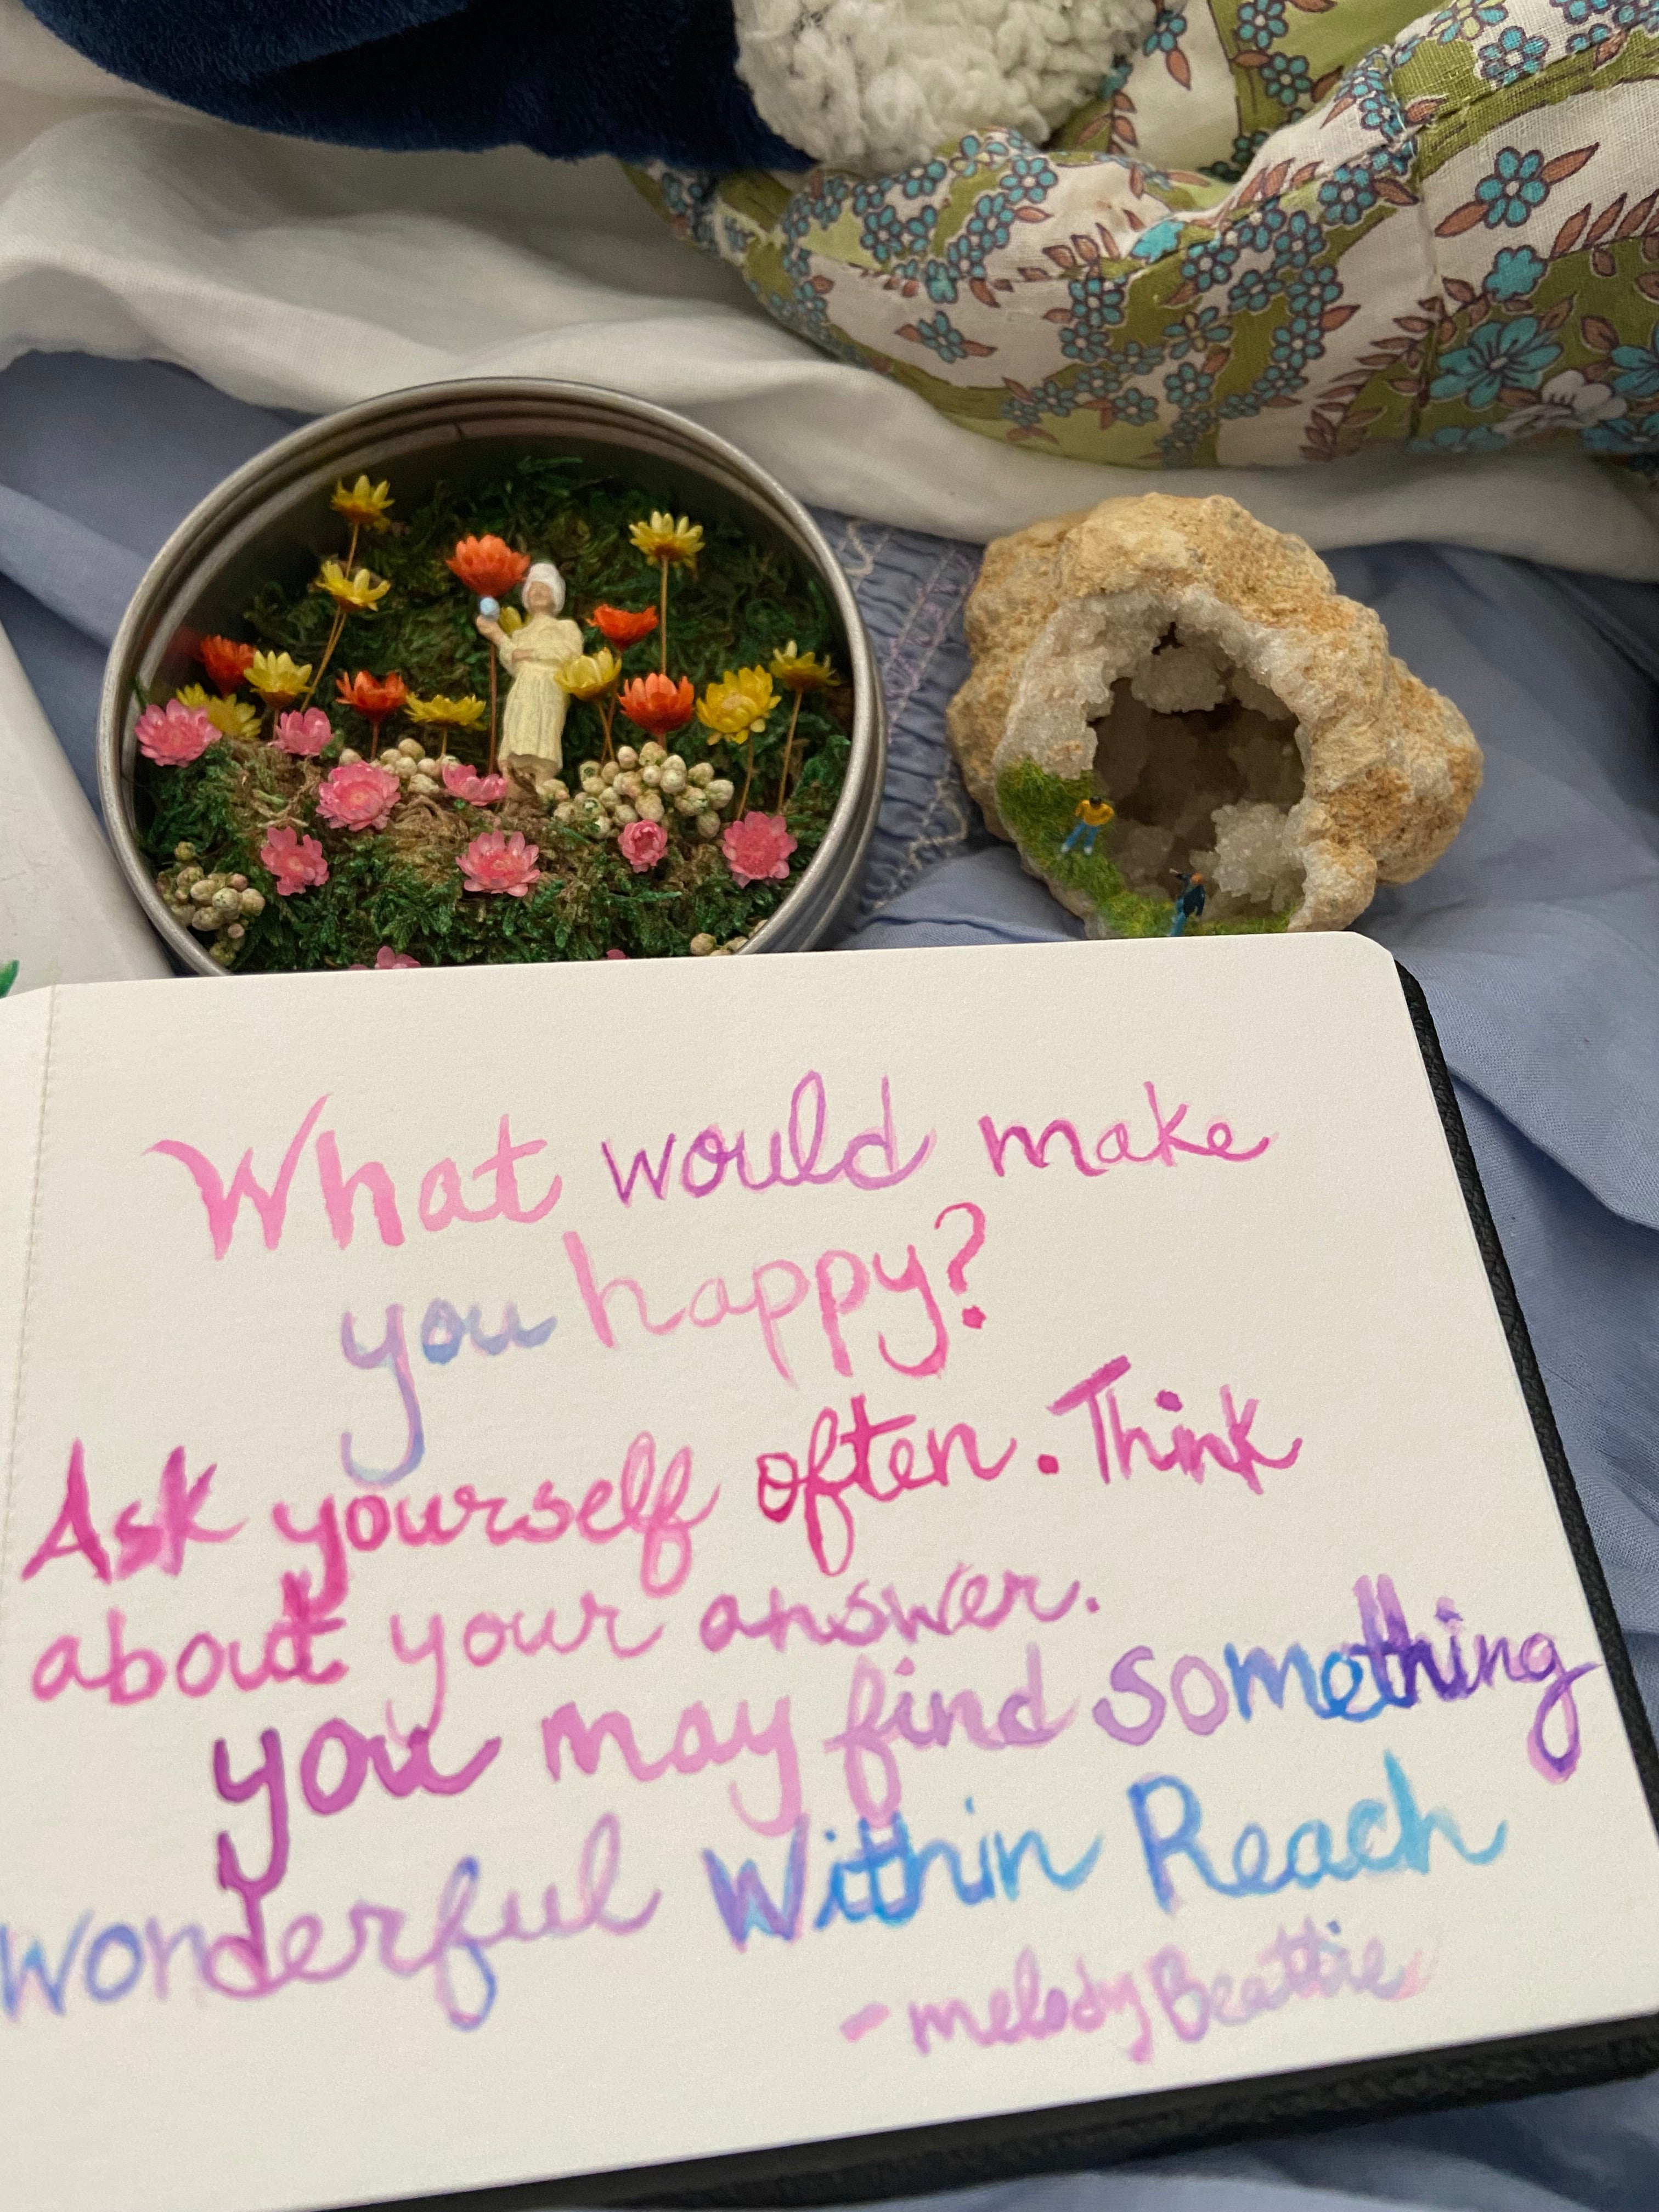 What would make
you happy?
Ask yourself often. Think
about your answer.
you may find something
wonderful Within Reach
- melody Beattie